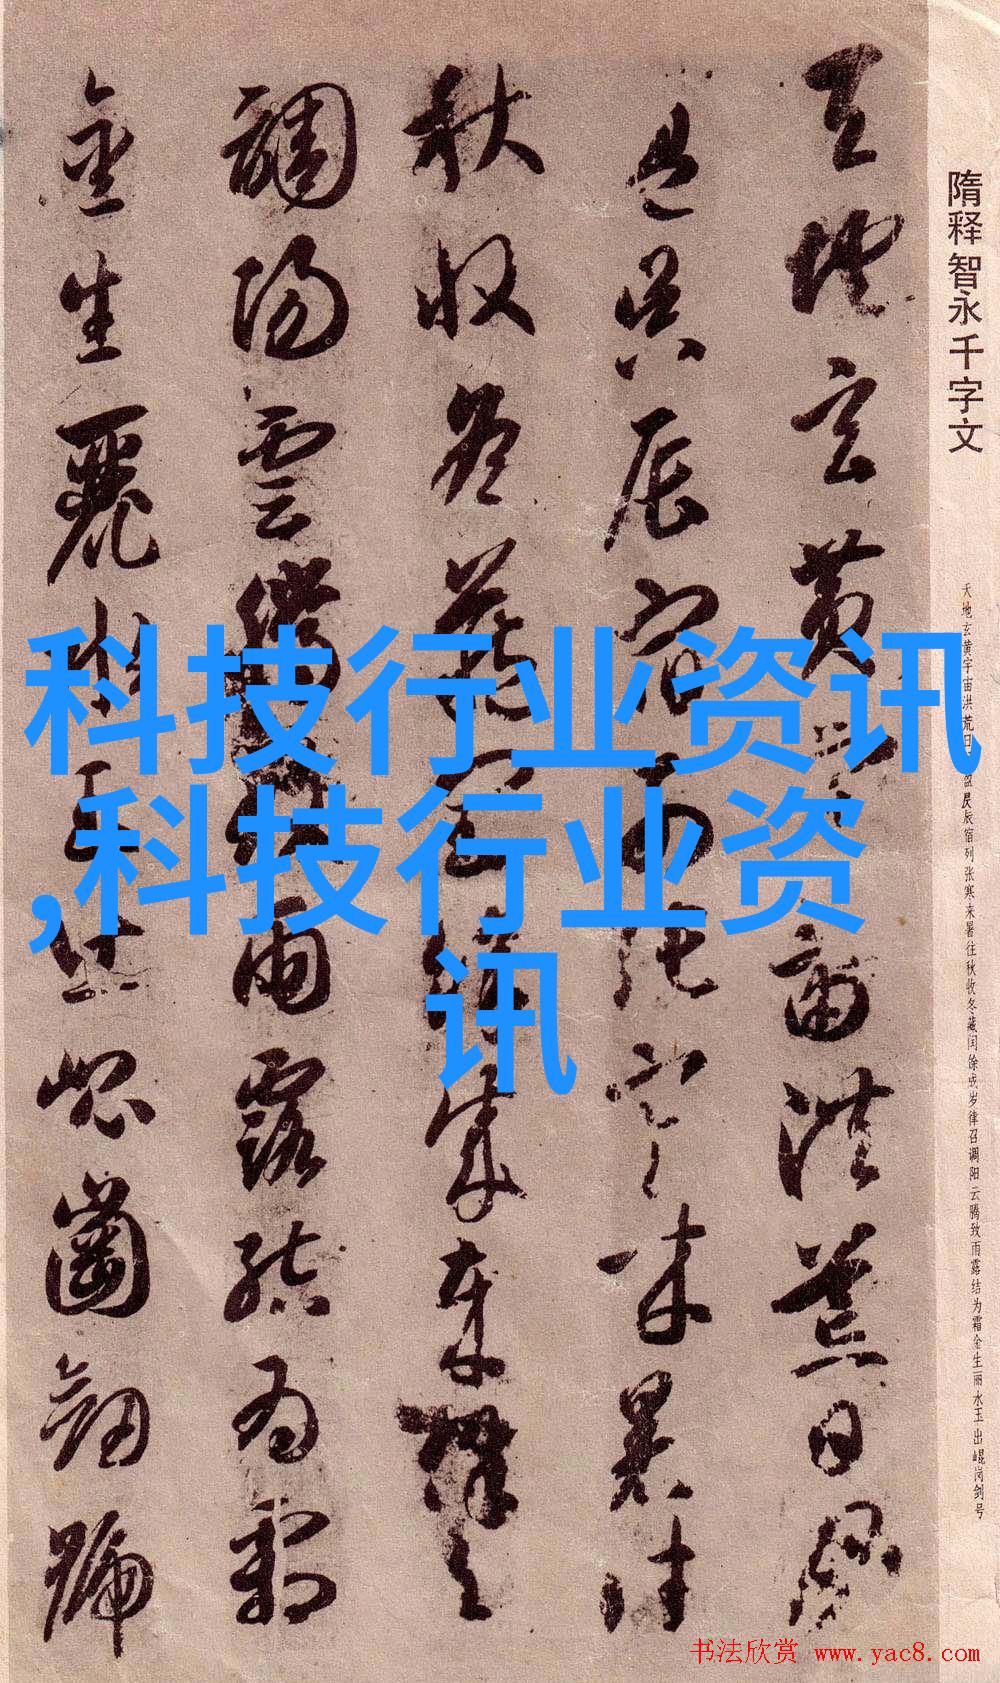 隋释智永千字文
天地玄黄宇宙洪荒日月盈昃辰宿列张寒来暑往秋收冬藏闰馀成岁律召调阳云腾致雨露结为霜金生丽水玉出崐岗剑号
天地玄黄宇宙洪荒日月
盈昃辰宿列張寒来暑往
秋收冬蔵閏餘成歲律召
調陽雲騰致雨露結為霜
金生麗水玉出崐崗劔號
科技行业资讯
,科技行业资
讯
书法欣赏 www.yac8.com